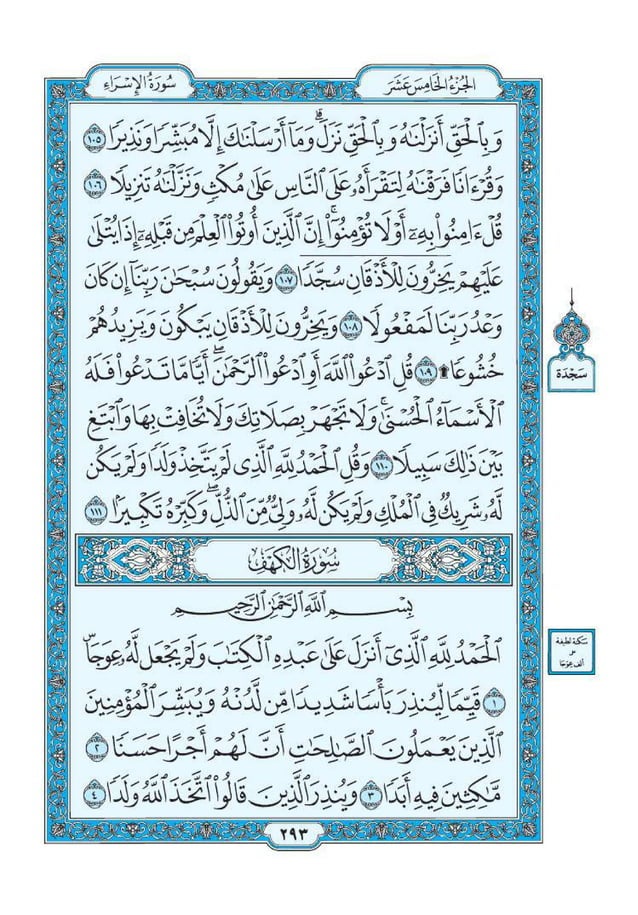 سُورَةُ الإِسْرَاءِ
الجُزْءُ الخَامِسَ عَشَرَ
وَبِٱلْحَقِّ أَنزَلْنَٰهُ وَبِٱلْحَقِّ نَزَلَ ۗ وَمَآ أَرْسَلْنَٰكَ إِلَّا مُبَشِّرًا وَنَذِيرًا ١٠٥
وَقُرْءَانًا فَرَقْنَٰهُ لِتَقْرَأَهُۥ عَلَى ٱلنَّاسِ عَلَىٰ مُكْثٍ وَنَزَّلْنَٰهُ تَنزِيلًا ١٠٦
قُلْ ءَامِنُوا۟ بِهِۦٓ أَوْ لَا تُؤْمِنُوٓا۟ ۚ إِنَّ ٱلَّذِينَ أُوتُوا۟ ٱلْعِلْمَ مِن قَبْلِهِۦٓ إِذَا يُتْلَىٰ
عَلَيْهِمْ يَخِرُّونَ لِلْأَذْقَانِ سُجَّدًا ١٠٧ وَيَقُولُونَ سُبْحَٰنَ رَبِّنَآ إِن كَانَ
وَعْدُ رَبِّنَا لَمَفْعُولًا ١٠٨ وَيَخِرُّونَ لِلْأَذْقَانِ يَبْكُونَ وَيَزِيدُهُمْ
خُشُوعًا ۩ ١٠٩ قُلِ ٱدْعُوا۟ ٱللَّهَ أَوِ ٱدْعُوا۟ ٱلرَّحْمَٰنَ ۖ أَيًّا مَّا تَدْعُوا۟ فَلَهُ
ٱلْأَسْمَآءُ ٱلْحُسْنَىٰ ۚ وَلَا تَجْهَرْ بِصَلَاتِكَ وَلَا تُخَافِتْ بِهَا وَٱبْتَغِ
بَيْنَ ذَٰلِكَ سَبِيلًا ١١٠ وَقُلِ ٱلْحَمْدُ لِلَّهِ ٱلَّذِى لَمْ يَتَّخِذْ وَلَدًا وَلَمْ يَكُن
لَّهُۥ شَرِيكٌ فِى ٱلْمُلْكِ وَلَمْ يَكُن لَّهُۥ وَلِىٌّ مِّنَ ٱلذُّلِّ ۖ وَكَبِّرْهُ تَكْبِيرًۢا ١١١
سُورَةُ الكَهْفِ
بِسْمِ ٱللَّهِ ٱلرَّحْمَٰنِ ٱلرَّحِيمِ
ٱلْحَمْدُ لِلَّهِ ٱلَّذِىٓ أَنزَلَ عَلَىٰ عَبْدِهِ ٱلْكِتَٰبَ وَلَمْ يَجْعَل لَّهُۥ عِوَجَاۜ
١ قَيِّمًا لِّيُنذِرَ بَأْسًا شَدِيدًا مِّن لَّدُنْهُ وَيُبَشِّرَ ٱلْمُؤْمِنِينَ
ٱلَّذِينَ يَعْمَلُونَ ٱلصَّٰلِحَٰتِ أَنَّ لَهُمْ أَجْرًا حَسَنًا ٢
مَّٰكِثِينَ فِيهِ أَبَدًا ٣ وَيُنذِرَ ٱلَّذِينَ قَالُوا۟ ٱتَّخَذَ ٱللَّهُ وَلَدًا ٤
٢٩٣
سَجْدَة
سكتة لطيفة
على
ألف عوجا